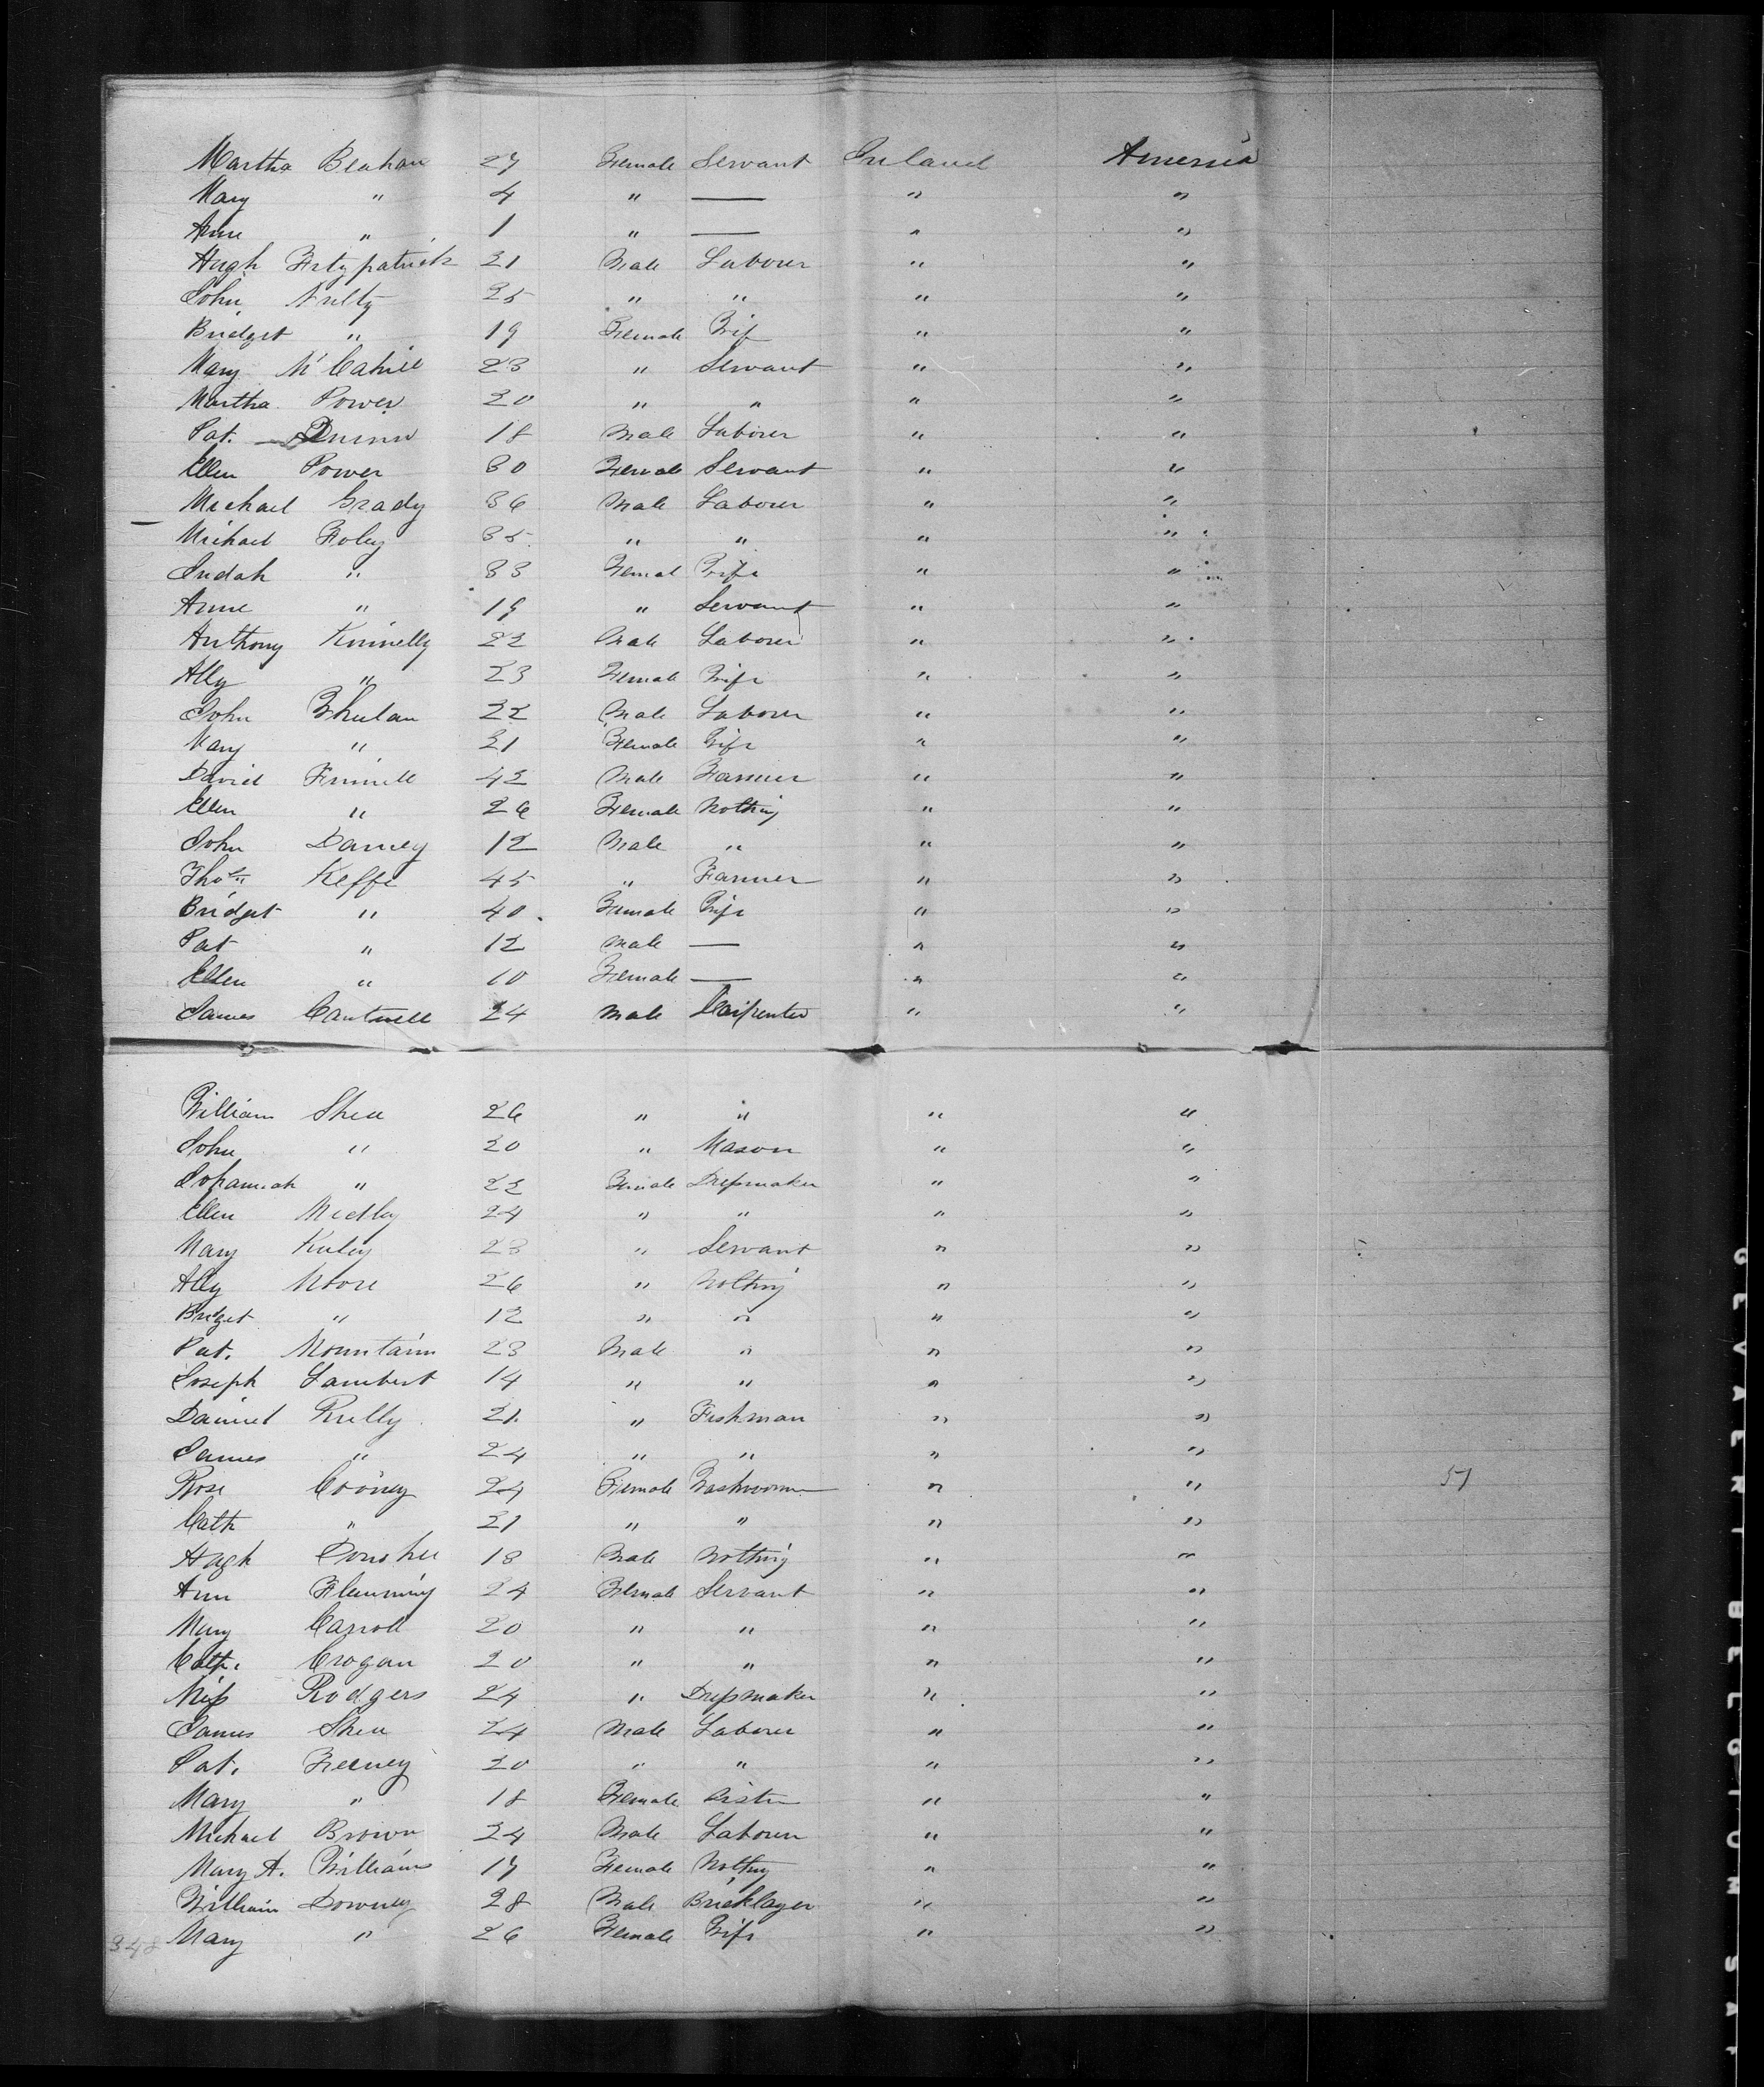 Martha Beahan 27 Female Servant Ireland America
Mary " 4 " — " "
Anne " 1 " — " "
Hugh Fitzpatrick 21 Male Laborer " "
John Nulty 25 " " " "
Bridget " 19 Female Wife " "
Mary McCahill 23 " Servant " "
Martha Power 20 " " " "
Pat. Dunn 18 Male Laborer " "
Ellen Power 30 Female Servant " "
Michael Grady 36 Male Laborer " "
Michael Foley 35 " " " "
Judah " 33 Femal Wife " "
Anne " 19 " Servant " "
Anthony Kinnelly 22 Male Laborer " "
Ally " 23 Female Wife " "
John Whelan 22 Male Laborer " "
Mary " 21 Female Wife " "
David 42 Male Farmer " "
Ellen " 26 Female Nothing " "
John Darney 12 Male " " "
Thos Keffe 45 " Farmer " "
Bridget " 40 Female Wife " "
Pat " 12 Male — " "
Ellen " 10 Female — " "
James Cantwell 24 Male Carpenter " "
William Shea 26 " " " "
John " 20 " Mason " "
Johannah " 22 Female Dressmaker " "
Ellen 24 " " " "
Mary 23 " Servant " "
Ally Moore 26 " Nothing " "
Bridget " 12 " " " "
Pat. Mountain 23 Male " " "
Joseph Lambert 14 " " " "
Daniel Reilly 21 " Fishman " "
James " 24 " " " "
Rose Cooney 24 Female Washwoman " " 51
Cath " 21 " " " "
Hugh Donohu 18 Male Nothing " "
Ann Flemming 24 Female Servant " "
Mary Carroll 20 " " " "
Cath. Crogan 20 " " " "
Miss Rodgers 24 " Dressmaker " "
James Shea 24 Male Laborer " "
Pat. Feeney 20 " " " "
Mary " 18 Female Sister " "
Michael Brown 24 Male Laborer " "
Mary A. Williams 17 Female Nothing " "
William Downey 28 Male Bricklayer " "
348 Mary " 26 Female Wife " "
GEVAERT BELGIUM SAF